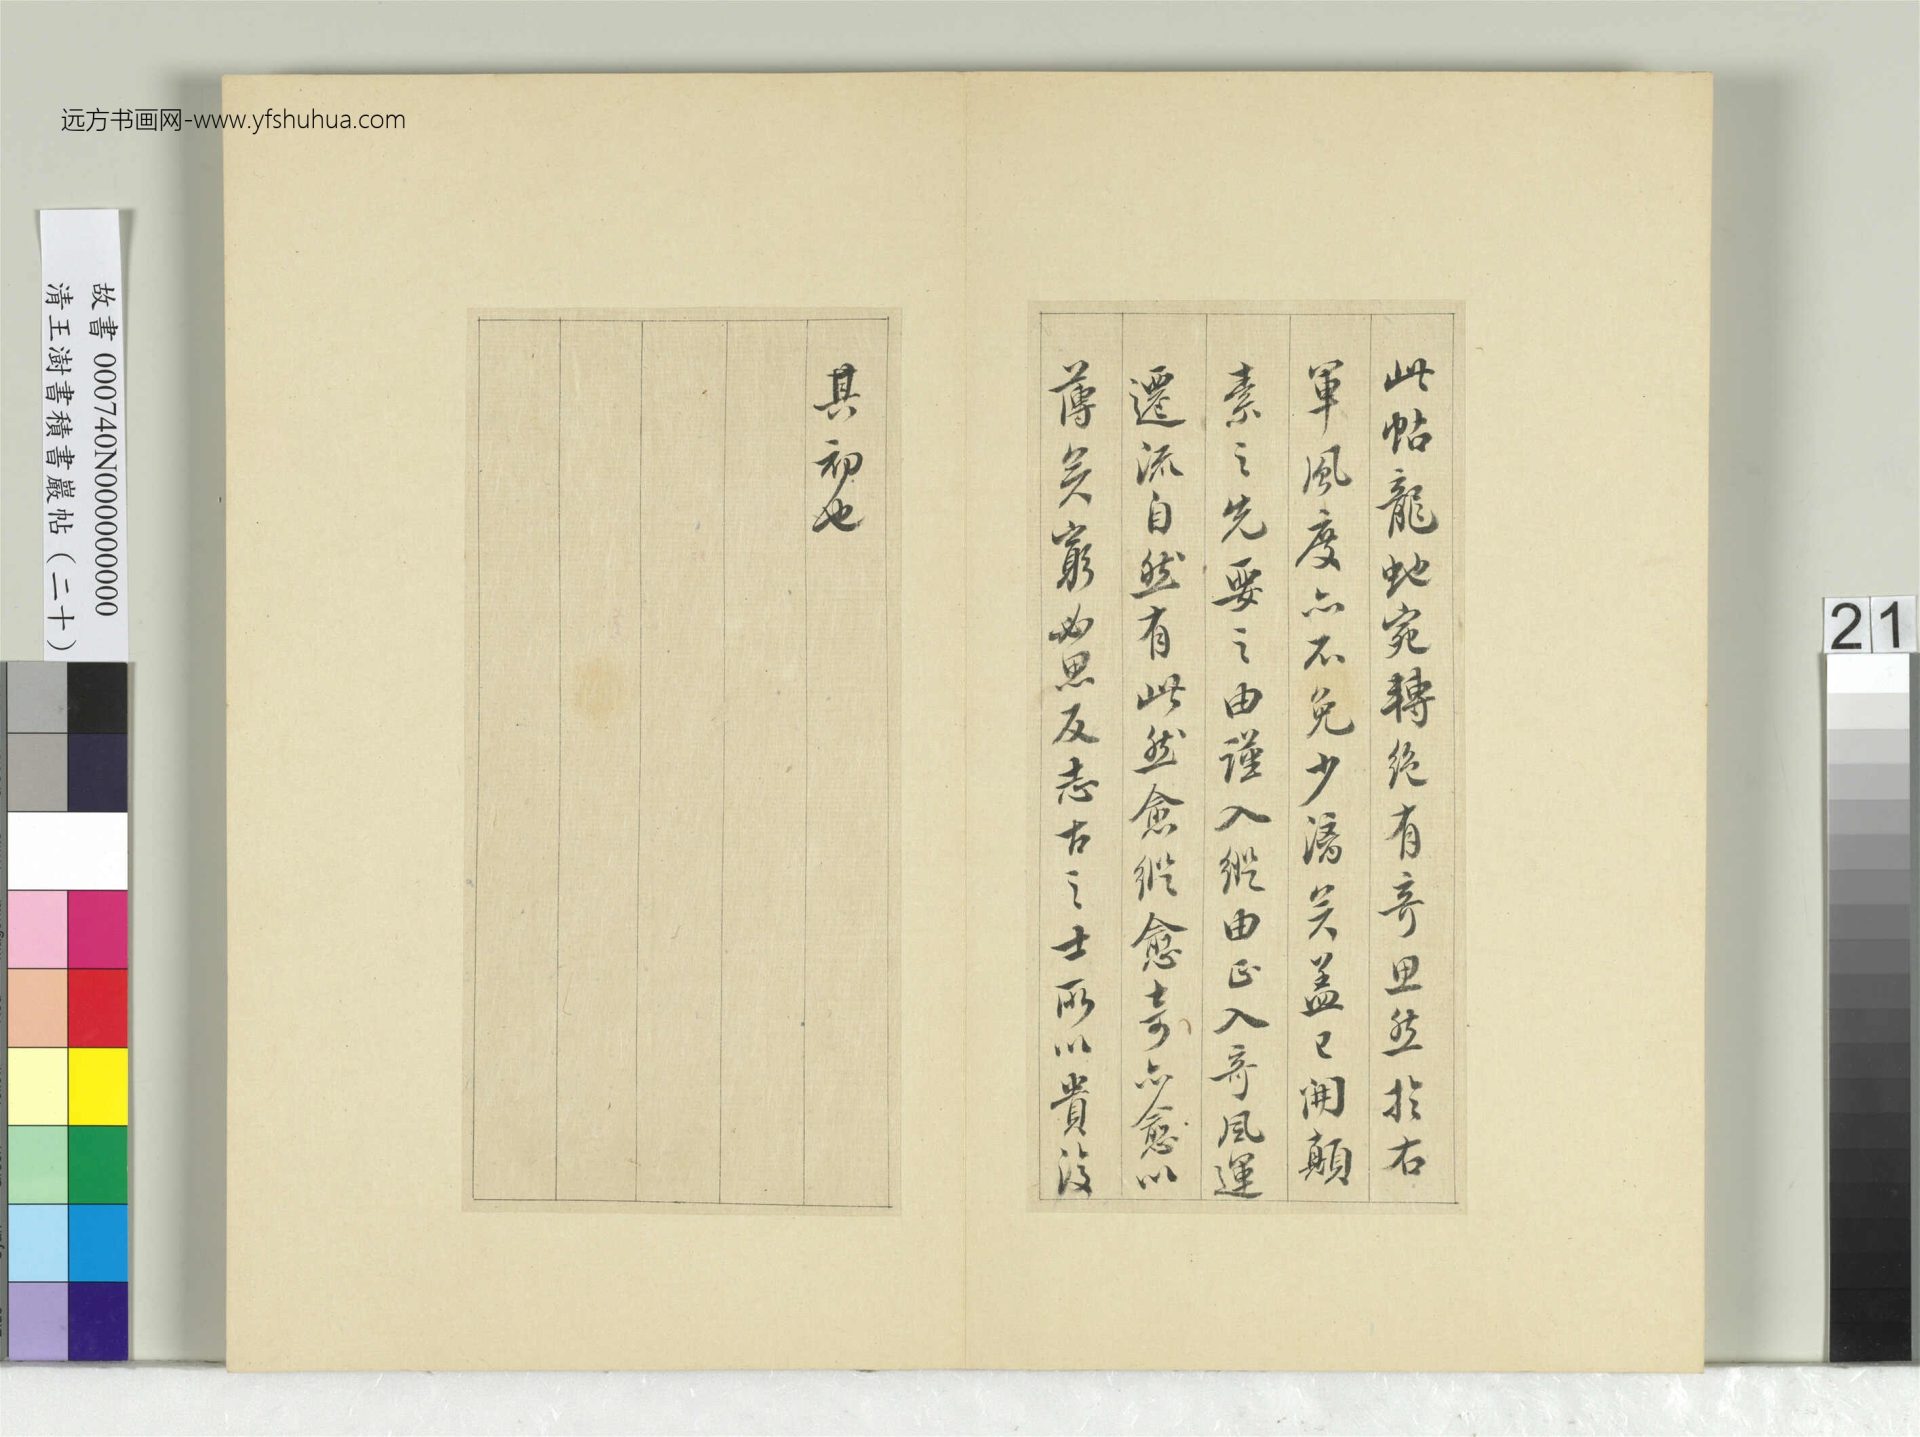 远方书画网-www.yfshuhua.com
故書 000740N000000000
清王澍書積書巖帖（二十）
21
此帖龍蛇宛轉絕有奇思然於右
軍風度亦不免少漓矣蓋已開顛
素之先要之由謹入縱由正入奇風運
遷流自然有此然愈縱愈奇亦愈以
薄矣窮必思反志古之士所以貴復
其初也